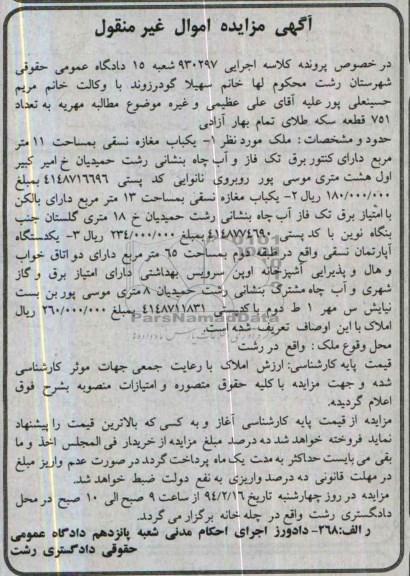 آگهی مزایده اموال غیر منقول
در خصوص پرونده کلاسه اجرایی ۹۳۰۲۹۷ شعبه ۱۵ دادگاه عمومی حقوقی
شهرستان رشت محکوم لها خانم سهیلا گودرزوند با وکالت خانم مریم
حسینعلی پور علیه آقای علی عظیمی و غیره موضوع مطالبه مهریه به تعداد
۷۵۱ قطعه سکه طلای تمام بهار آزادی
حدود و مشخصات : ملک مورد نظر ۱- یکباب مغازه نسقی بمساحت ۱۱ متر
مربع دارای کنتور برق تک فاز و آب چاه بنشانی رشت حمیدیان خ امیر کبیر
اول هشت متری موسی پور روبروی نانوایی کد پستی ۴۱۴۸۷۱۶۶۹۶ بمبلغ
۱۸۰/۰۰۰/۰۰۰ ریال ۲- یکباب مغازه نسقی بمساحت ۱۳ متر مربع دارای بالکن
با امتیاز برق تک فاز آب چاه بنشانی رشت حمیدیان خ ۱۸ متری گلستان جنب
بنگاه نوین با کد پستی ۴۱۴۸۷۷۴۶۹۰ بمبلغ ۲۳۴/۰۰۰/۰۰۰ ریال ۳- یکدستگاه
آپارتمان نسقی واقع در طبقه دوم بمساحت ۶۵ متر مربع دارای دو اتاق خواب
و هال و پذیرایی آشپزخانه اوپن سرویس بهداشتی دارای امتیاز برق و گاز
شهری و آب چاه مشترک بنشانی رشت حمیدیان ۸ متری موسی پور بن بست
نیایش س مهر ۱ ط دوم با کدپستی ۴۱۴۸۷۱۱۸۳۱ بمبلغ ۲۶۰/۰۰۰/۰۰۰ ریال
املاک با این اوصاف تعریف شده است.
ParsNamadData
محل وقوع ملک : واقع در رشت
قیمت پایه کارشناسی: ارزش املاک با رعایت جمعی جهات موثر کارشناسی
شده و جهت مزایده با کلیه حقوق متصوره و امتیازات منصوبه بشرح فوق
اعلام گردیده.
مزایده از قیمت پایه کارشناسی آغاز و به کسی که بالاترین قیمت را پیشنهاد
نماید فروخته خواهد شد ده درصد مبلغ مزایده از خریدار فی المجلس اخذ و ما
بقی می بایست حداکثر به مدت یک ماه پرداخت گردد در صورت عدم واریز مبلغ
در مهلت قانونی ده درصد واریزی به نفع دولت ضبط خواهد شد.
مزایده در روز چهارشنبه تاریخ ۹۴/۲/۱۶ از ساعت ۹ صبح الی ۱۰ صبح در محل
دادگستری رشت واقع در چله خانه برگزار می گردد.
ر الف:۳۶۸- دادورز اجرای احکام مدنی شعبه پانزدهم دادگاه عمومی
حقوقی دادگستری رشت